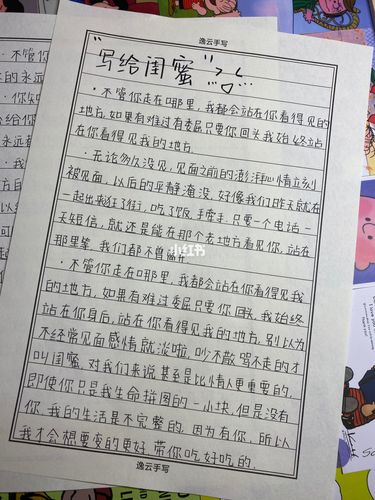 逸云手写
"写给闺蜜"
·不管你走在哪里,我都会站在你看得见的
地方,如果有难过有委屈只要你回头我始终站
在你看得见我的地方
·无论多久没见,见面之前的澎湃心情立刻
被见面,以后的平静淹没,好像我们昨天就在
一起出来逛了街,吃了饭,手牵手,只要一个电话一
天短信,就还是能在那个老地方看见你,站在
那里笔,我们都不曾离开
·不管你走在哪里,我都会站在你看得见我
的地方,如果有难过委屈只要你回头,我始终
站在你身后,站在你看得见我的地方,别以为
不经常见面感情就淡啦,吵不散骂不走的才
叫闺蜜,对我们来说甚至是比情人更重要的,
即使你只是我生命拼图的一小块,但是没有
你,我的生活是不完整的,因为有你,所以
我才会想要变的更好,带你吃好吃的,
逸云手写
小红书